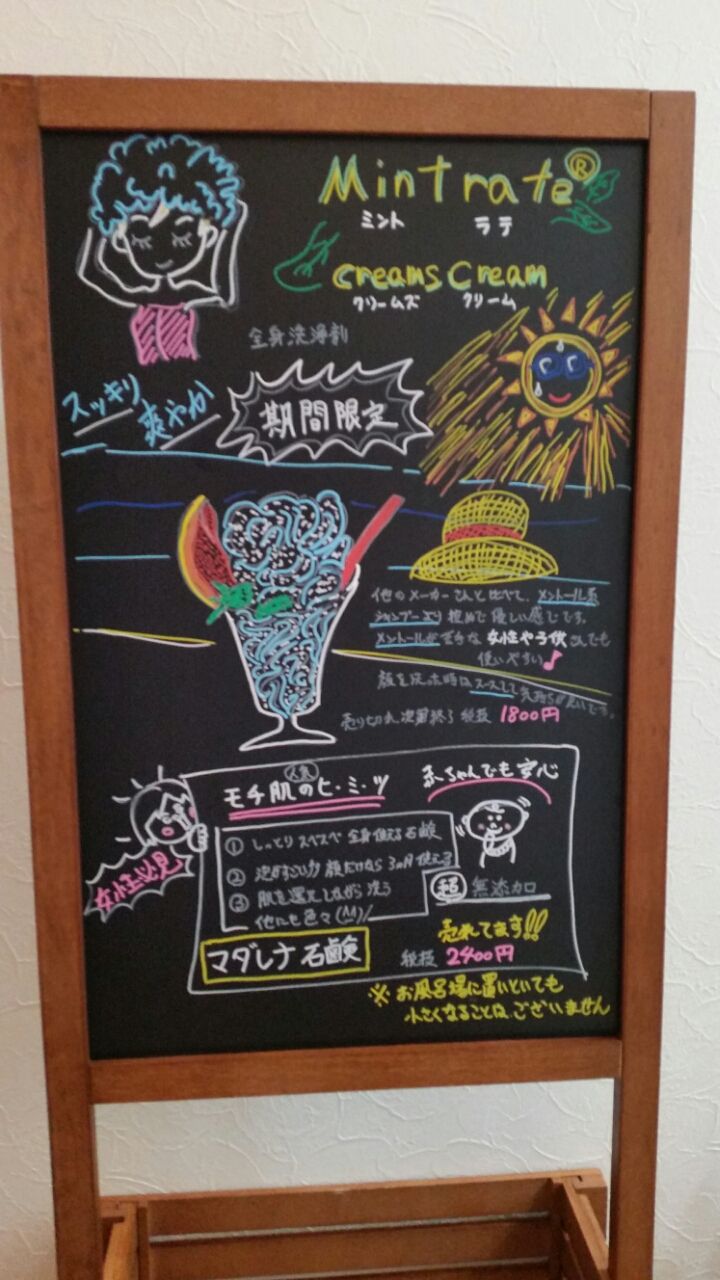 Mint rate®
ミント ラテ
creams cream
クリームズ クリーム
全身洗浄剤
スッキリ
爽やか
期間限定
他のメーカーさんと比べて、メントール系
シャンプーより極めて優しい感じです。
メントールが苦手な女性や子供さんでも
使いやすい♪
顔を洗った時はスースーして気持ちが良いです。
売り切れ次第終了 税抜 1800円
人気
モチ肌のヒ・ミ・ツ
赤ちゃんでも安心
女性必見
① しっとりスベスベ 全身使える石鹸
② 泡がすごい力 顔だけなら3ヵ月使える
③ 肌を還元しながら洗う
他にも色々(^^)/
超 無添加
マダレナ石鹸
売れてます!!
税抜 2400円
※ お風呂場に置いといても
小さくなることは、ございません